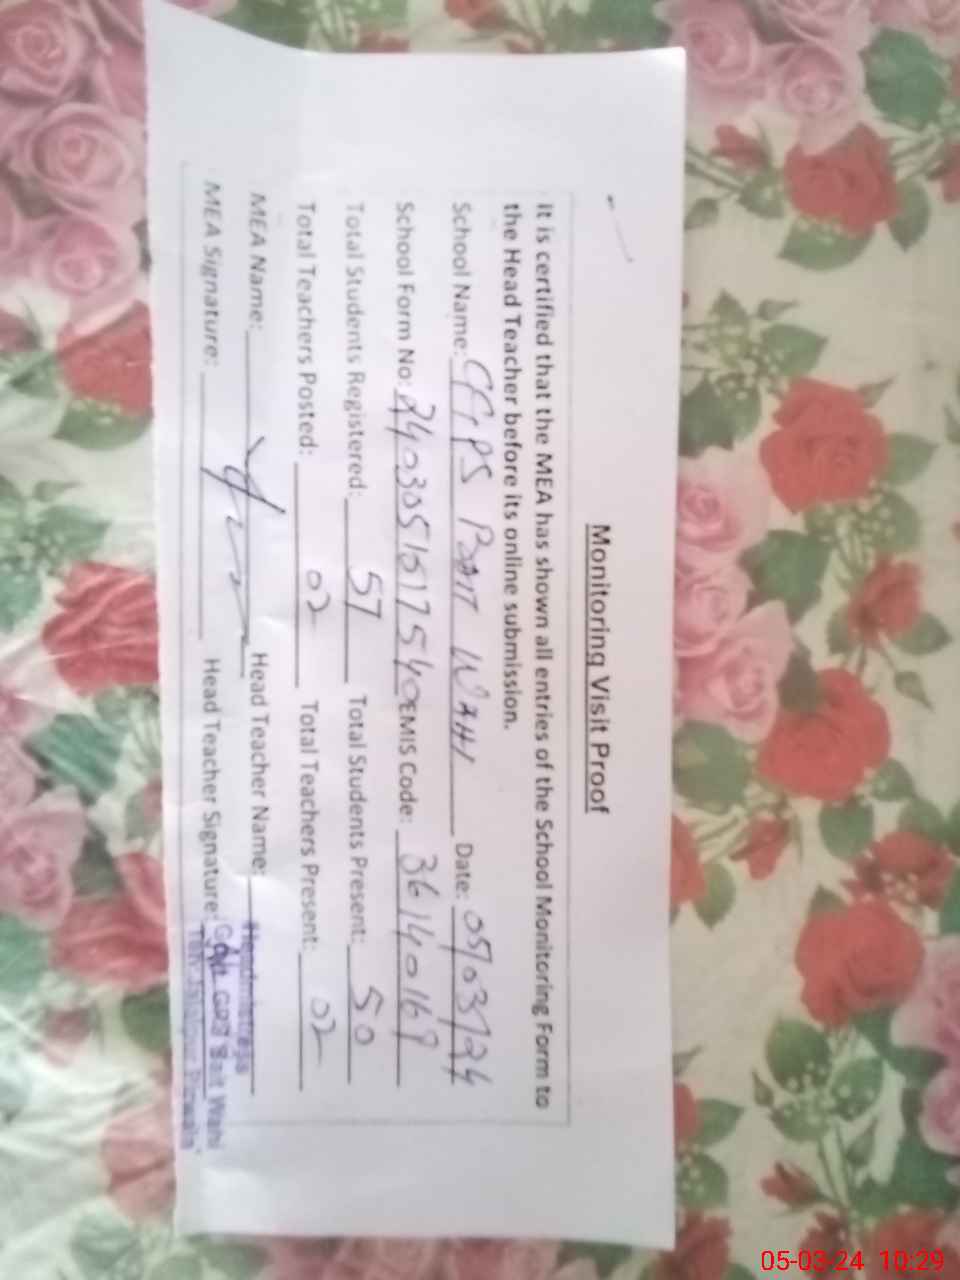 Monitoring Visit Proof
It is certified that the MEA has shown all entries of the School Monitoring Form to
the Head Teacher before its online submission.
School Name: GGPS BAIT WAHI Date: 05/03/24
School Form No: 2403051617540 EMIS Code: 36140169
Total Students Registered: 57 Total Students Present: 50
Total Teachers Posted: 02 Total Teachers Present: 02
MEA Name: Head Teacher Name: Headmistress
MEA Signature: Head Teacher Signature: Govt. GPS Bait Wahi
Teh Jalalpur Pirwala
05-03-24 10:29